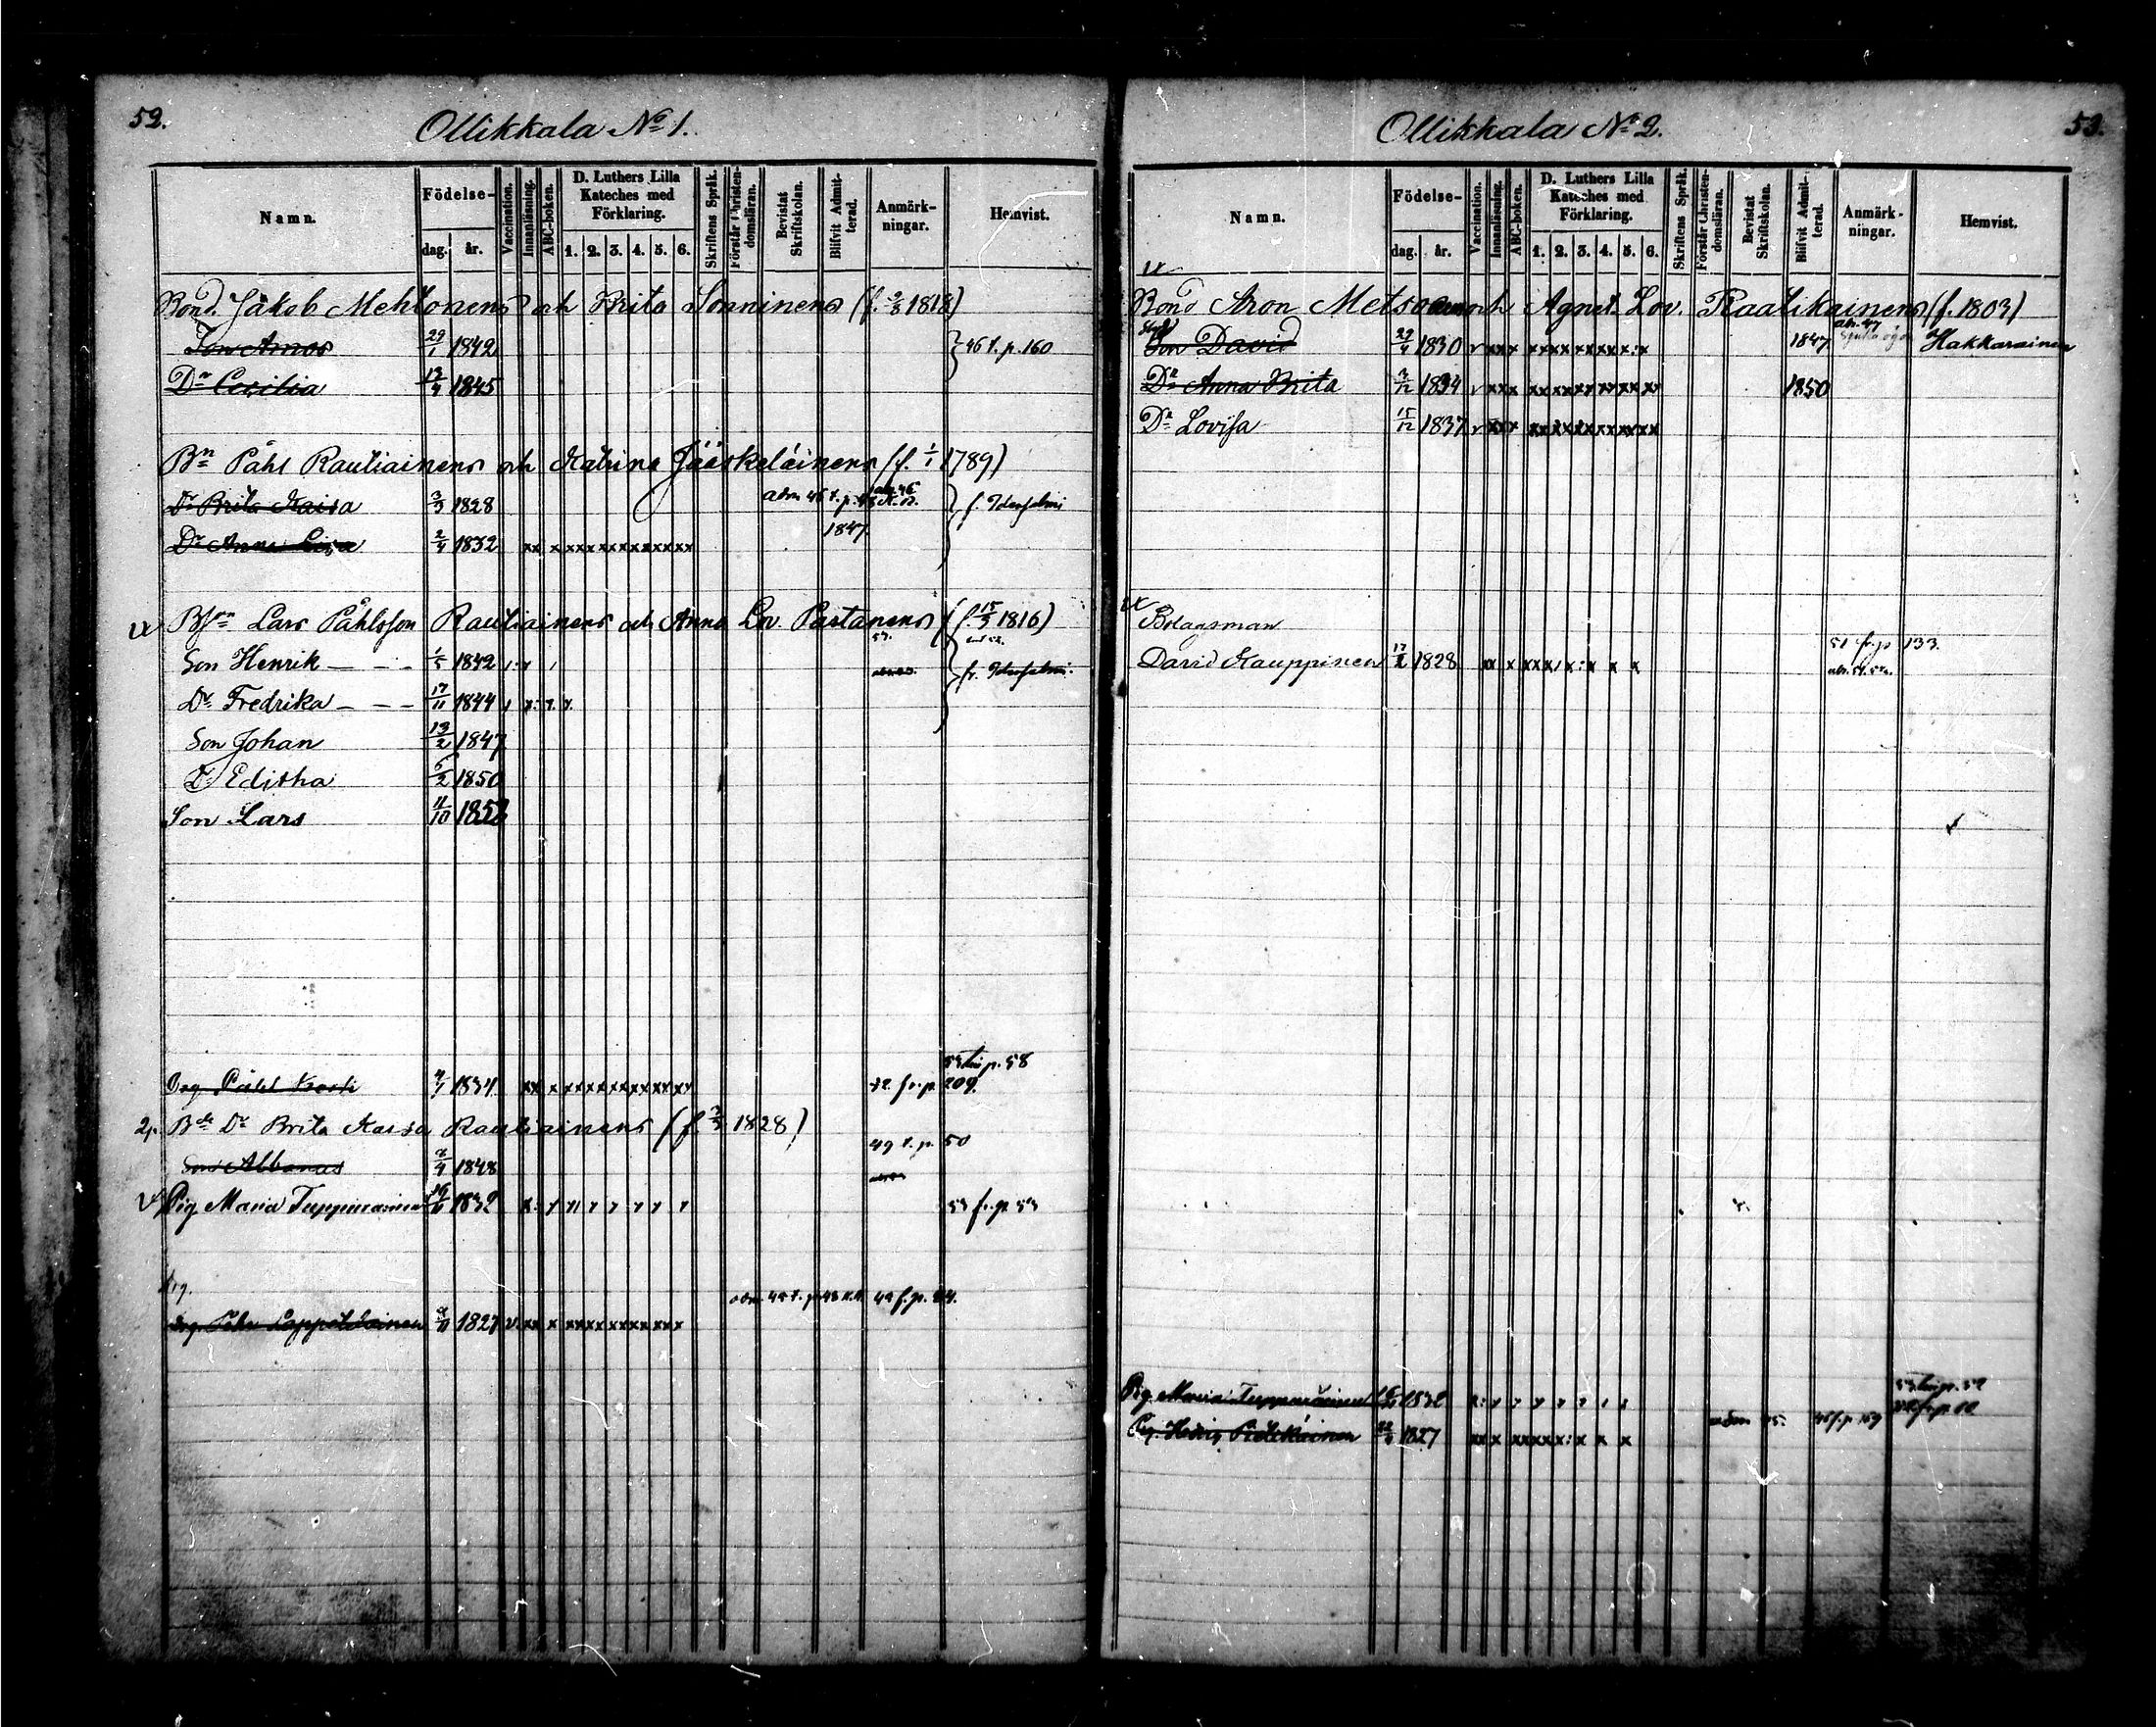 52.
Ollikkala No 1.
Namn. Födelse- Vaccination. Innanläsning. ABC-boken. D. Luthers Lilla Kateches med Förklaring. Skriftens Språk. Förstår Christendomsläran. Bevistat Skriftskolan. Blifvit Admitterad. Anmärkningar. Hemvist.
dag. år. 1. 2. 3. 4. 5. 6.
Bond. Jakob Mehtonens och Brita Sonninens (f. 2/8 1818)
Son Amos 29/1 1842 } 46 t. p. 160
Dr Cecilia 13/4 1845
Bn Påhl Rautiainens och Katrina Jääskeläinens (f. 1/1 1789)
Dr Brita Kaisa 3/3 1828 f. Idensalmi
1847.
Dr Anna Lisa 2/4 1832 xx x xxxxxxxxxxxx
Bson Lars Påhlsson Rautiainens och Anna Lov. Partanens (f. 15/3 1816)
Son Henrik — — - 1/5 1842 fr. Idensalmi.
Dr Fredrika — — — 17/11 1844
Son Johan 13/2 1847
Dr Editha 6/2 1850
Son Lars 11/10 1852
53 till p. 58
Drg. Påhl 4/7 1834 xx x xxxxxxxxxxxx 52. fr. p. 209.
2. Bde Dr Brita Kaisa Rautiainens (f. 3/3 1828)
49 t. p. 50
Son Albanus 1848
Pig. Maria Tuppurainen 16/6 1832 53 fr. p. 53
Drg.
49 f. p. 24.
1827 v. xx x xxxxxxxxxxx
53.
Ollikkala No 2.
Namn. Födelse- Vaccination. Innanläsning. ABC-boken. D. Luthers Lilla Kateches med Förklaring. Skriftens Språk. Förstår Christendomsläran. Bevistat Skriftskolan. Blifvit Admitterad. Anmärkningar. Hemvist.
dag. år. 1. 2. 3. 4. 5. 6.
Bond Aron Metsoinen och Agnet. Lov. Raatikainens (f. 1803)
Son David 29/4 1830 v xxx xxxx xxxxxx:x 1847 Hakkarainen
Dr Anna Brita 3/12 1834 v xxx xx xxxx xx xxx xx 1850
Dr Lovisa 15/12 1837 v xxx xxxxxxxxxxxx
Bolagsman
51 fr. p. 133.
David Kauppinen 17/2 1828 xx x xxx, x:x x x
53 till p. 52
Pig. Maria Tuppurainen 16/6 1832
Pig. Hedvig 1827 xx x xxxxx:x x x